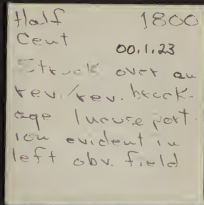 Half 1800
Cent
00.1.23
Struck over an
rev./rev. brock-
age Incuse port-
ion evident in
left obv. field